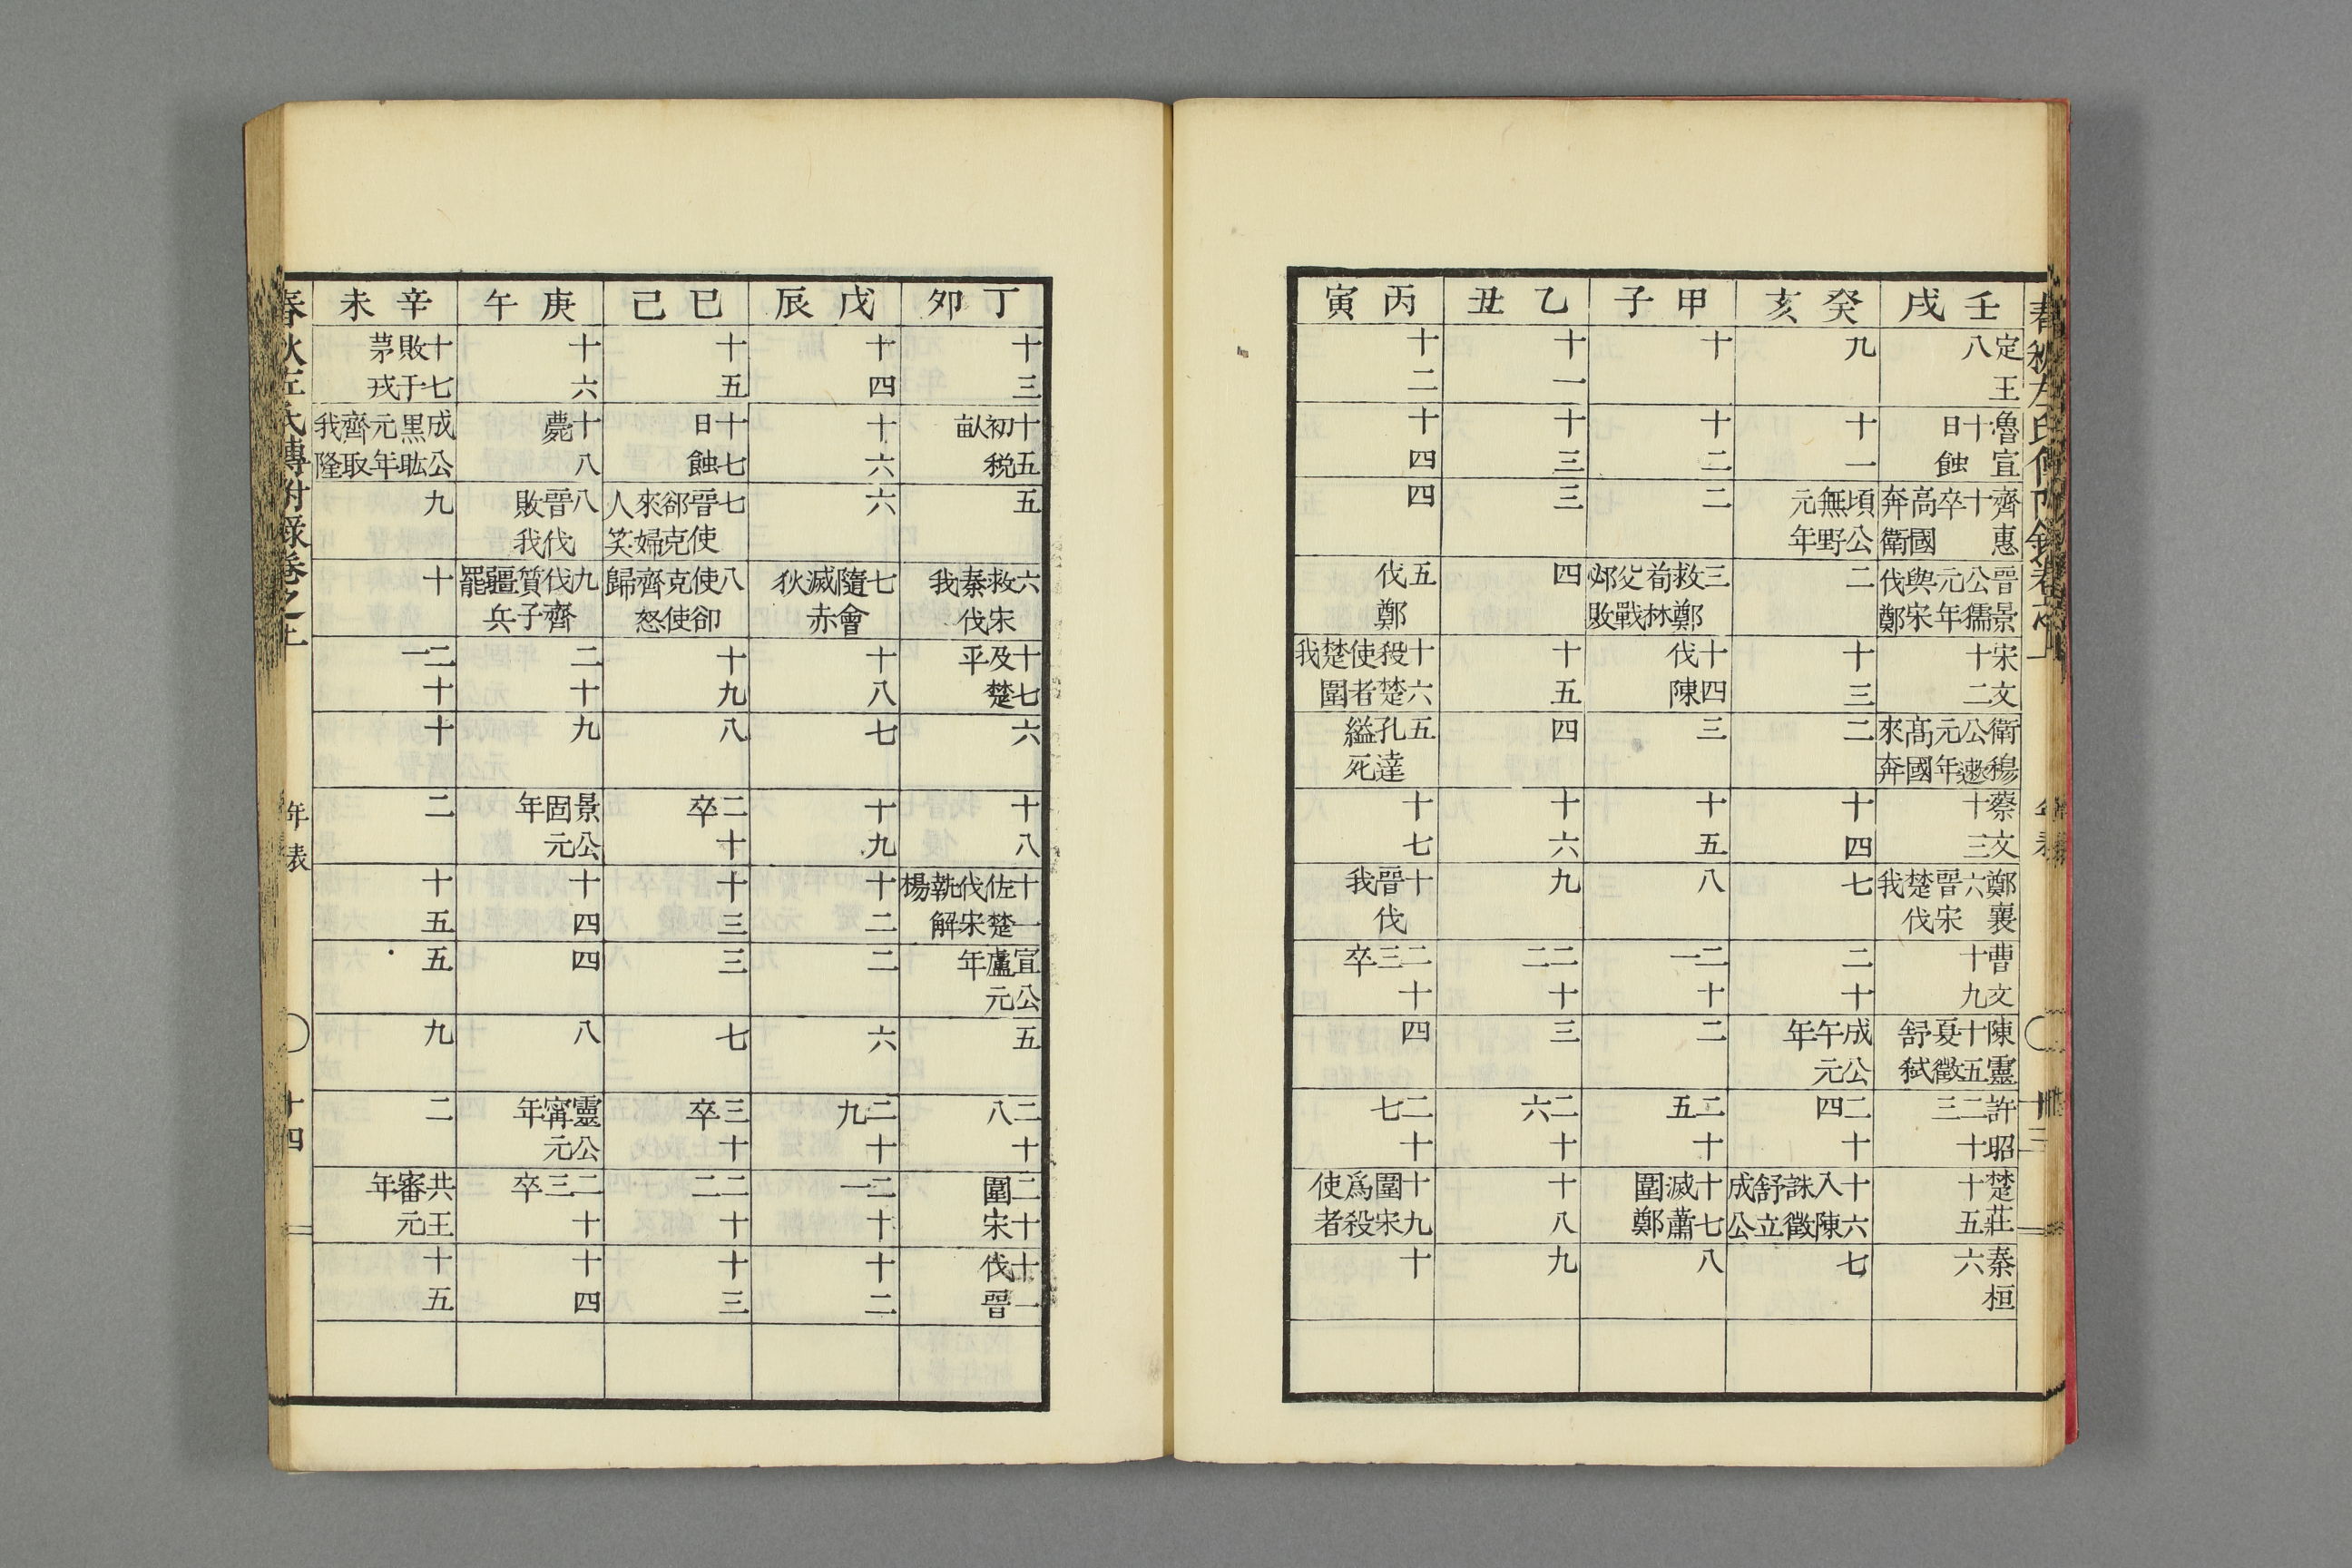 春秋左氏傳附錄卷之上 年表 十三
壬戌
定王八
魯宣十日蝕
齊惠十卒高國奔衛
晉景公獳元年與宋伐鄭
宋文十二
衛穆公遬元年高國來奔
蔡文十三
鄭襄六晉宋楚伐我
曹文十九
陳靈十五夏徵舒弑
許昭二十三
楚莊十五
秦桓六
癸亥
九
十一
頃公無野元年
二
十三
二
十四
七
二十
成公午元年
二十四
十六入陳誅徵舒立成公
七
甲子
十
十二
二
三救鄭荀林父戰邲敗
十四伐陳
三
十五
八
二十一
二
二十五
十七滅蕭圍鄭
八
乙丑
十一
十三
三
四
十五
四
十六
九
二十二
三
二十六
十八
九
丙寅
十二
十四
四
五伐鄭
十六殺楚使者楚圍我
五孔達縊死
十七
十晉伐我
二十三卒
四
二十七
十九圍宋爲殺使者
十
丁卯
十三
十五初税畝
五
六救宋秦伐我
十七及楚平
六
十八
十一佐楚伐宋執解楊
宣公盧元年
五
三十八
二十圍宋
十一伐晉
戊辰
十四
十六
六
七隨會滅赤狄
十八
七
十九
十二
二
六
二十九
二十一
十二
已己
十五
十七日蝕
七晉使郤克來婦人笑
八使郤克使齊怒歸
十九
八
二十卒
十三
三
七
三十卒
二十二
十三
庚午
十六
十八薨
八晉伐伐敗我
九伐齊質子疆兵罷
二十
九
景公固元年
十四
四
八
靈公甯元年
二十三卒
十四
辛未
十七敗于茅戎
成公黑肱元年齊取我隆
九
十
二十一
十
二
十五
五
九
二
共王審元年
十五
春秋左氏傳附錄卷之上 年表 十四